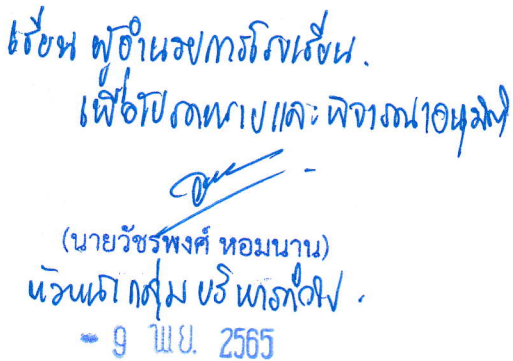 เรียน ผู้อำนวยการโรงเรียน.
เพื่อโปรดทราบและพิจารณาอนุมัติ
(นายวัชรพงศ์ หอมนาน)
หัวหน้ากลุ่มบริหารทั่วไป.
- 9 พ.ย. 2565